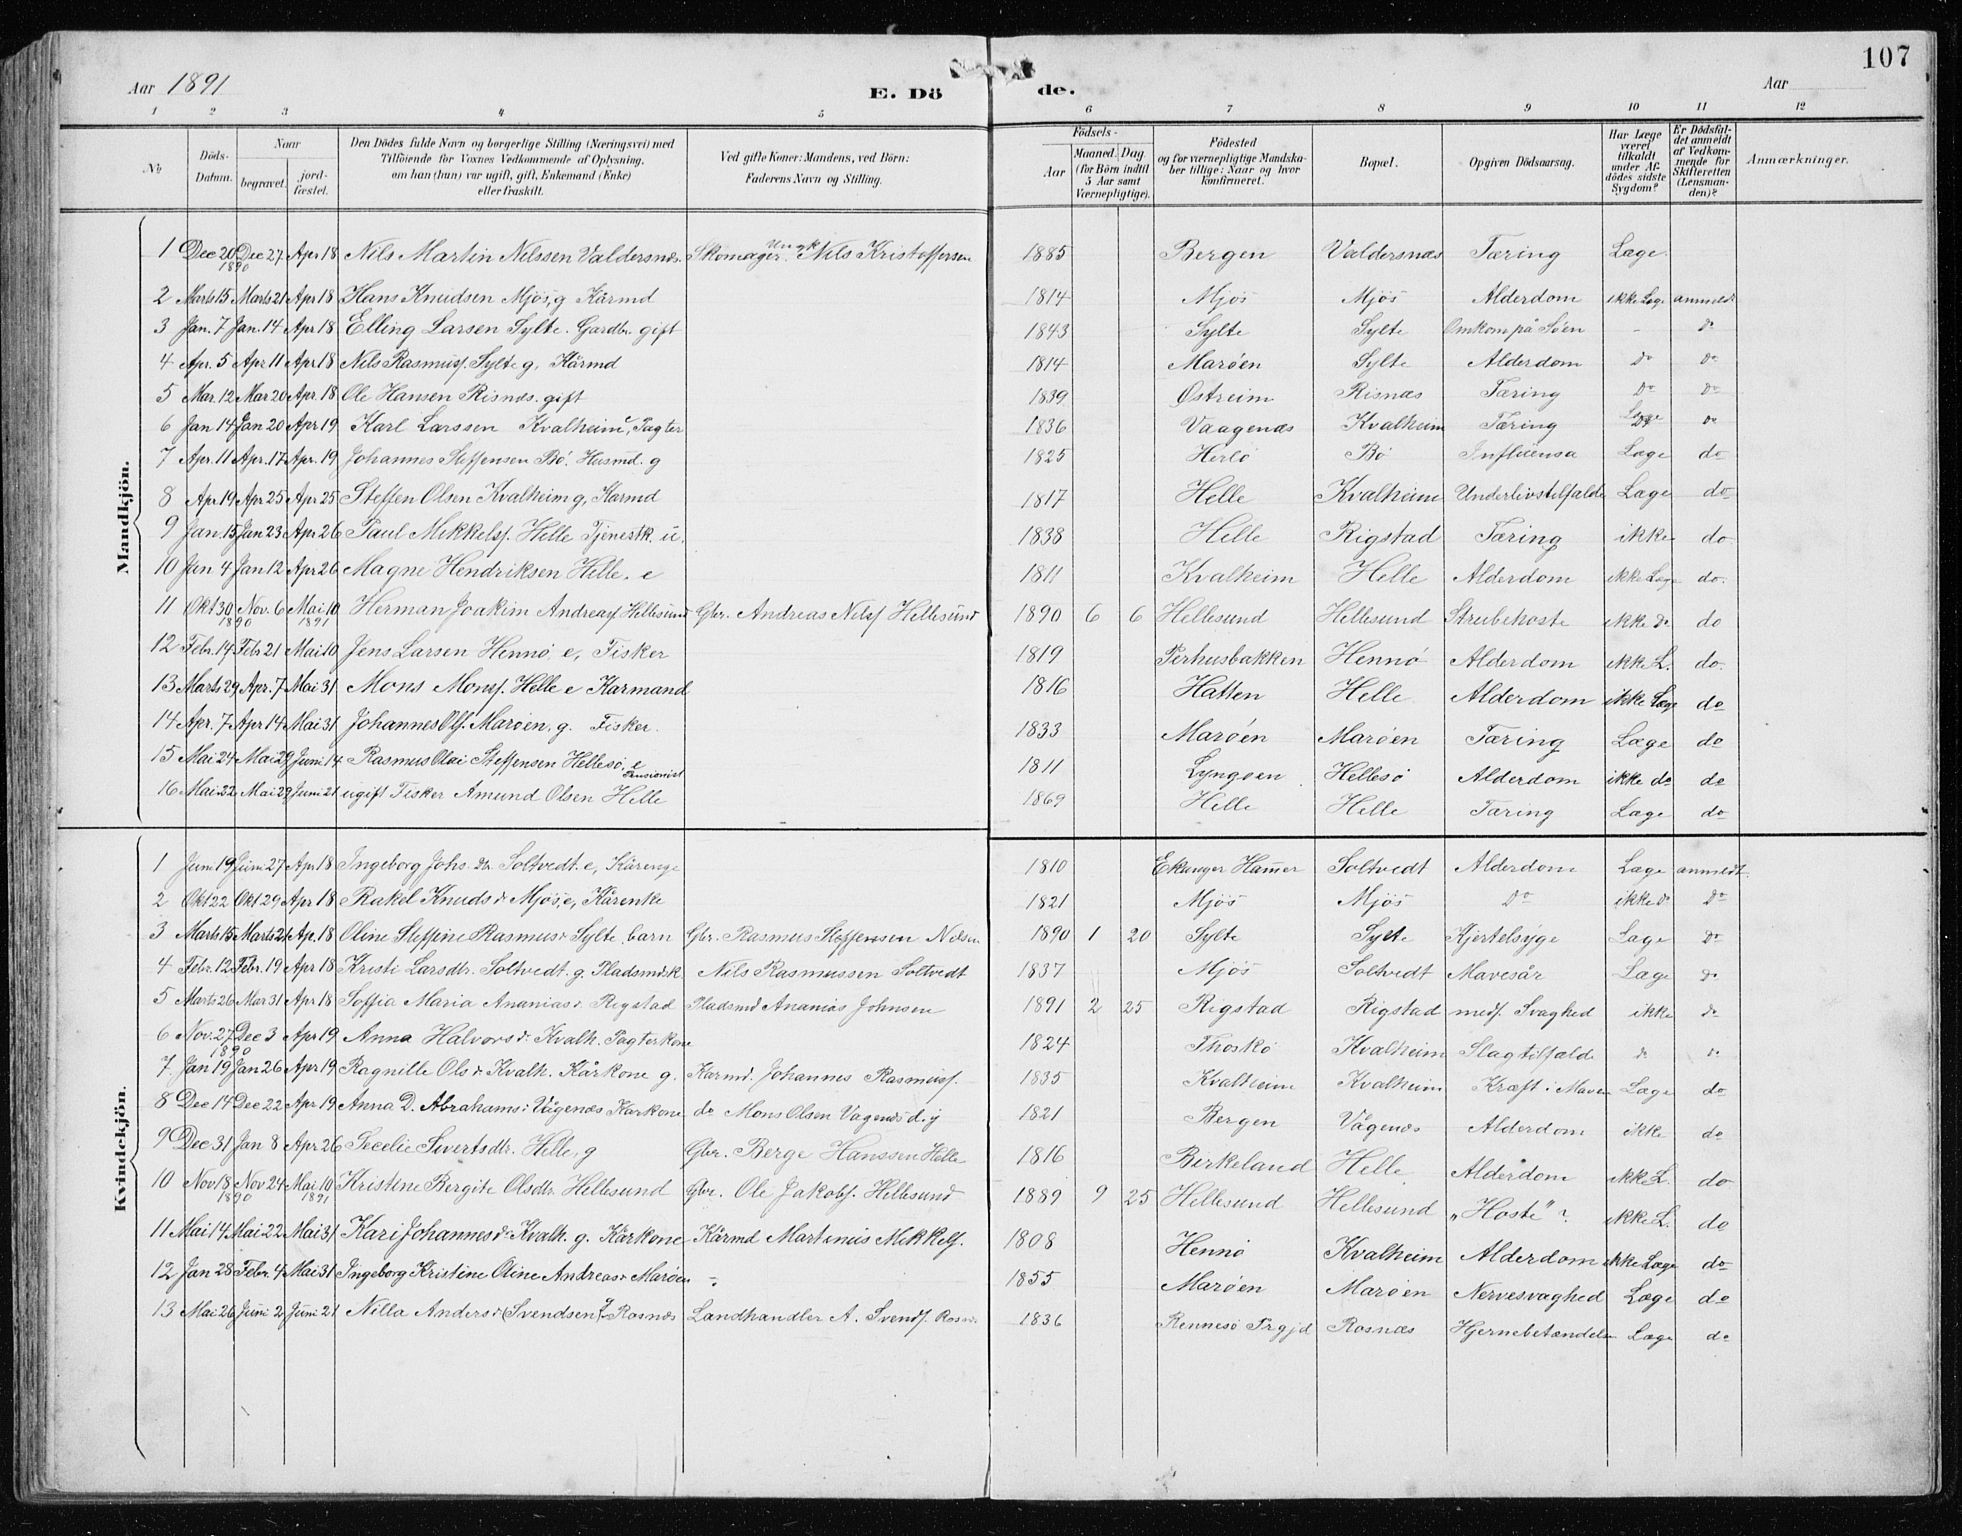 107
Aar 1891
E. Döde.
Aar
1 2 3 4 5 6 7 8 9 10 11 12
No
Döds-Datum.
Naar
begravet.
jord-fæstet.
Den Dödes fulde Navn og borgerlige Stilling (Næringsvei) med
Tilföiende for Voxnes Vedkommende af Oplysning.
om han (hun) var ugift, gift, Enkemand (Enke)
eller fraskilt.
Ved gifte Koner: Mandens, ved Börn:
Faderens Navn og Stilling.
Födsels-
Aar
Maaned. Dag.
(for Börn indtil
5 Aar samt
Værnepligtige).
Födested
og for værnepligtige Mandska-
ber tillige: Naar og hvor
konfirmeret.
Bopæl.
Opgiven Dödsaarsag.
Har Læge
været
tilkaldt
under Af-
dödes sidste
Sygdom?
Er Dödsfal-
det anmeldt
af Vedkom-
mende for
Skifteretten
(Lensman-
den)?
Anmærkninger.
Mandkjön.
1 Dec 20 1890 Dec 27 Apr 18 Nils Martin Nilssen Valdersnæs. Skomager Nils Kristoffersen 1885 Bergen Valdersnæs Tæring Læge
2 Marts 15 Marts 21 Apr 18 Hans Knudsen Mjös, g Kårmd 1814 Mjös Mjös Alderdom ikke Læge anmeldt
3 Jan. 7 Jan. 14 Apr 18 Elling Larsen Sylte. Gardbr. gift 1843 Sylte Sylte Omkom på Søen - do
4 Apr. 5 Apr. 11 Apr 18 Nils Rasmuss. Sylte g, Kårmd 1814 Marøen Sylte Alderdom do do
5 Mar. 12 Mar 20 Apr. 18 Ole Hansen Risnæs. gift 1839 Østreim Risnæs Tæring do do
6 Jan 14 Jan 20 Apr 19 Karl Larssen Kvalheim, Pagter 1836 Vaagenæs Kvalheim Tæring Læge do
7 Apr. 11 Apr. 17 Apr. 19 Johannes Steffensen Bö. Husmd. g 1825 Herlö Bö Influensa Læge do
8 Apr. 19 Apr 25 Apr 25 Steffen Olsen Kvalheim g, Karmd 1817 Helle Kvalheim Underlivstilfælde Læge do
9 Jan. 15 Jan 23 Apr 26 Paul Mikkels. Helle Tjenestk. u. 1838 Helle Rigstad Tæring ikke do
10 Jan 4 Jan 12 Apr 26 Magne Hendriksen Helle. e 1811 Kvalheim Helle Alderdom ikke Læge do.
11 Okt 30 1890 Nov. 6 Mai 10 1891 Herman Joakim Andreass Hellesund Gbr. Andreas Nilss Hellesund 1890 6 6 Hellesund Hellesund Strubehoste ikke do do
12 Febr. 14 Febr 21 Mai 10 Jens Larsen Hennö, e, Fisker 1819 Perhusbakken Hennö Alderdom ikke L. do
13 Marts 29 Apr. 7 Mai 31 Mons Monss. Helle e Karmand 1816 Hatten Helle Alderdom ikke Læge do
14 Apr. 7 Apr 14 Mai 31 Johannes Ols. Marøen, g. Fisker. 1833 Marøen Marøen Tæring Læge do
15 Mai 24 Mai 29 Juni 14 Rasmus Olai Steffensen Hellesö, e Pensionist 1811 Lyngøen Hellesö Alderdom ikke do do
16 Mai 22 Mai 29 Juni 21 ugift Fisker Amund Olsen Helle 1869 Helle Helle Tæring Læge do
Kvindekjön.
1 Juni 19 Juni 27 Apr 18 Ingeborg Johs. dtr Soltvedt. e, Kårenge 1810 Ekanger Hamer Soltvedt Alderdom Læge anmeldt
2 Okt 22 Okt 29 Apr 18 Rakel Knudsdr Mjös, e, Kårenke 1821 Mjös Mjös do ikke do do
3 Marts 15 Marts 21 Ap. 18 Oline Steffine Rasmusdr Sylte, barn Gbr. Rasmus Steffensen Nilsen 1890 1 20 Sylte Sylte Kjertelsyge Læge do
4 Febr. 12 Febr. 19 Apr 18 Kristi Larsdtr. Soltvedt. g. Pladsmdsk Nils Rasmussen Soltvedt 1837 Mjös Soltvedt Mavesår Læge do
5 Marts 26 Mar 31 Apr 18 Soffia Maria Ananiasdr Rigstad Pladsmd Ananias Johnsen 1891 2 25 Rigstad Rigstad medf. Svaghed ikke do
6 Nov. 27 1890 Dec 3 Apr 19 Anna Halvorsdr. Kvalh. Pagterkone 1824 Thoskö Kvalheim Slagtilfælde do do
7 Jan 19 Jan 26 Apr 19 Ragnille Olsdr Kvalh. Kårkone g. Karmd. Johannes Rasmuss. 1835 Kvalheim Kvalheim Kræft i Maven Læge do
8 Dec 14 Dec 22 Apr 19 Anna D. Abrahams: Vågenæs Karkone do Mons Olsen Vagenæs d. y 1821 Bergen Vågenæs Alderdom ikke do
9 Dec 31 Jan 8 Apr 26 Secelie Sivertsdtr. Helle, g Gbr. Berge Hanssen Helle 1816 Birkeland Helle Alderdom ikke L. do
10 Nov 18 1890 Nov 24 Mai 10 1891 Kristine Bergite Olsdtr. Hellesund Gbr. Ole Jakobs. Hellesund 1889 9 25 Hellesund Hellesund "Hoste"? ikke L. do
11 Mai 14 Mai 22 Mai 31 Kari Johannesdr Kvalh. g. Kårkone Kårmd Martinus Mikkels. 1808 Hennö Kvalheim Alderdom ikke Læge do
12 Jan 28 Febr. 4 Mai 31 Ingeborg Kristine Oline Andreasdr Marøen - 1855 Marøen Marøen Nervesvaghed Læge do
13 Mai 26 Juni 2 Juni 21 Nilla Andersdr (Svendsen) Rosnæs Landhandler A. Svends. Rosn. 1836 Rennesö Prgjd Rosnæs Hjernebetændelse Læge do